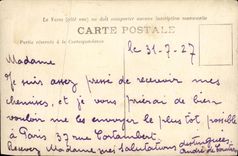 Le Verso (côté vue) ne doit comporter aucune inscription manuscrite
CARTE POSTALE
Partie réservée à la Correspondance
le 31-7-27
Madame
Je suis assez pressé de recevoir mes
chemises, et je vous prierai de bien
vouloir me les envoyer le plus tôt possible
à Paris 37 rue Cortambert.
Recevez Madame mes salutations distinguées
André de